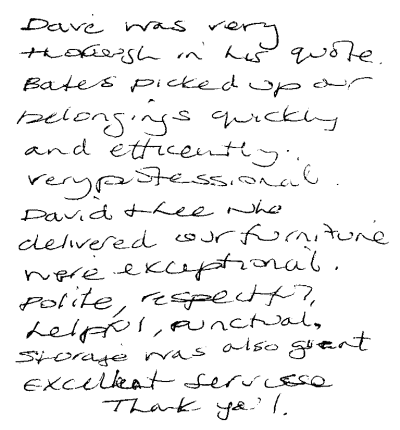 Dave was very
thorough in his quote.
Bates picked up our
belongings quickly
and efficently.
very professional.
David & Lee who
delivered our furniture
were exceptional.
Polite, respectful,
helpful, punctual.
Storage was also great
Excellent service
Thank you!.